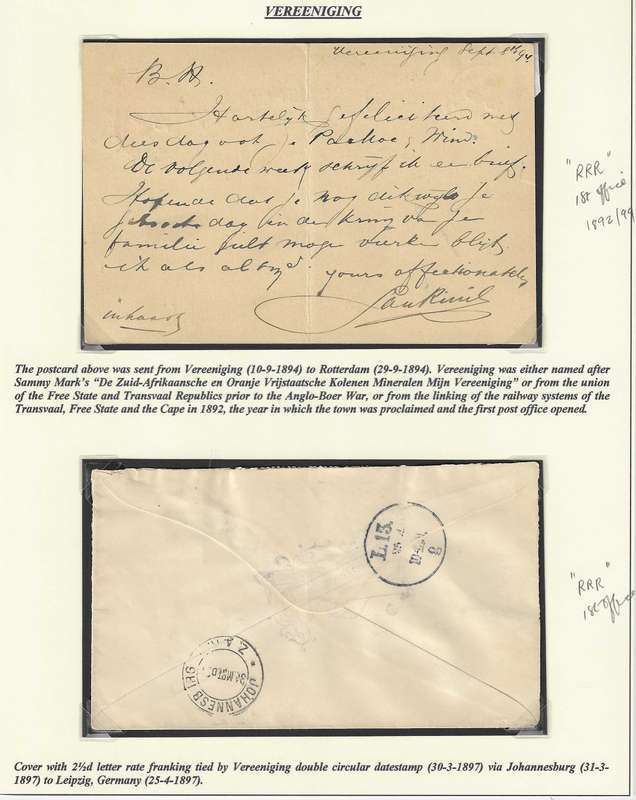 VEREENIGING
Vereeniging Sept. 8th 94.
B. H.
Hartelijk gefeliciteerd met
dees dag ook je
De volgende week schrijf ik een brief.
Hopende dat je nog dikwijls je
dag in de kring van je
familie zult moge vieren blijf
ik als altijd. yours affectionately
in haast
"RRR"
1st office
1892/99
The postcard above was sent from Vereeniging (10-9-1894) to Rotterdam (29-9-1894). Vereeniging was either named after
Sammy Mark's "De Zuid-Afrikaansche en Oranje Vrijstaatsche Kolenen Mineralen Mijn Vereeniging" or from the union
of the Free State and Transvaal Republics prior to the Anglo-Boer War, or from the linking of the railway systems of the
Transvaal, Free State and the Cape in 1892, the year in which the town was proclaimed and the first post office opened.
L. 13.
25 4
8
"RRR"
1st office
Z.A.R.
JOHANNESB
Cover with 2½d letter rate franking tied by Vereeniging double circular datestamp (30-3-1897) via Johannesburg (31-3-
1897) to Leipzig, Germany (25-4-1897).